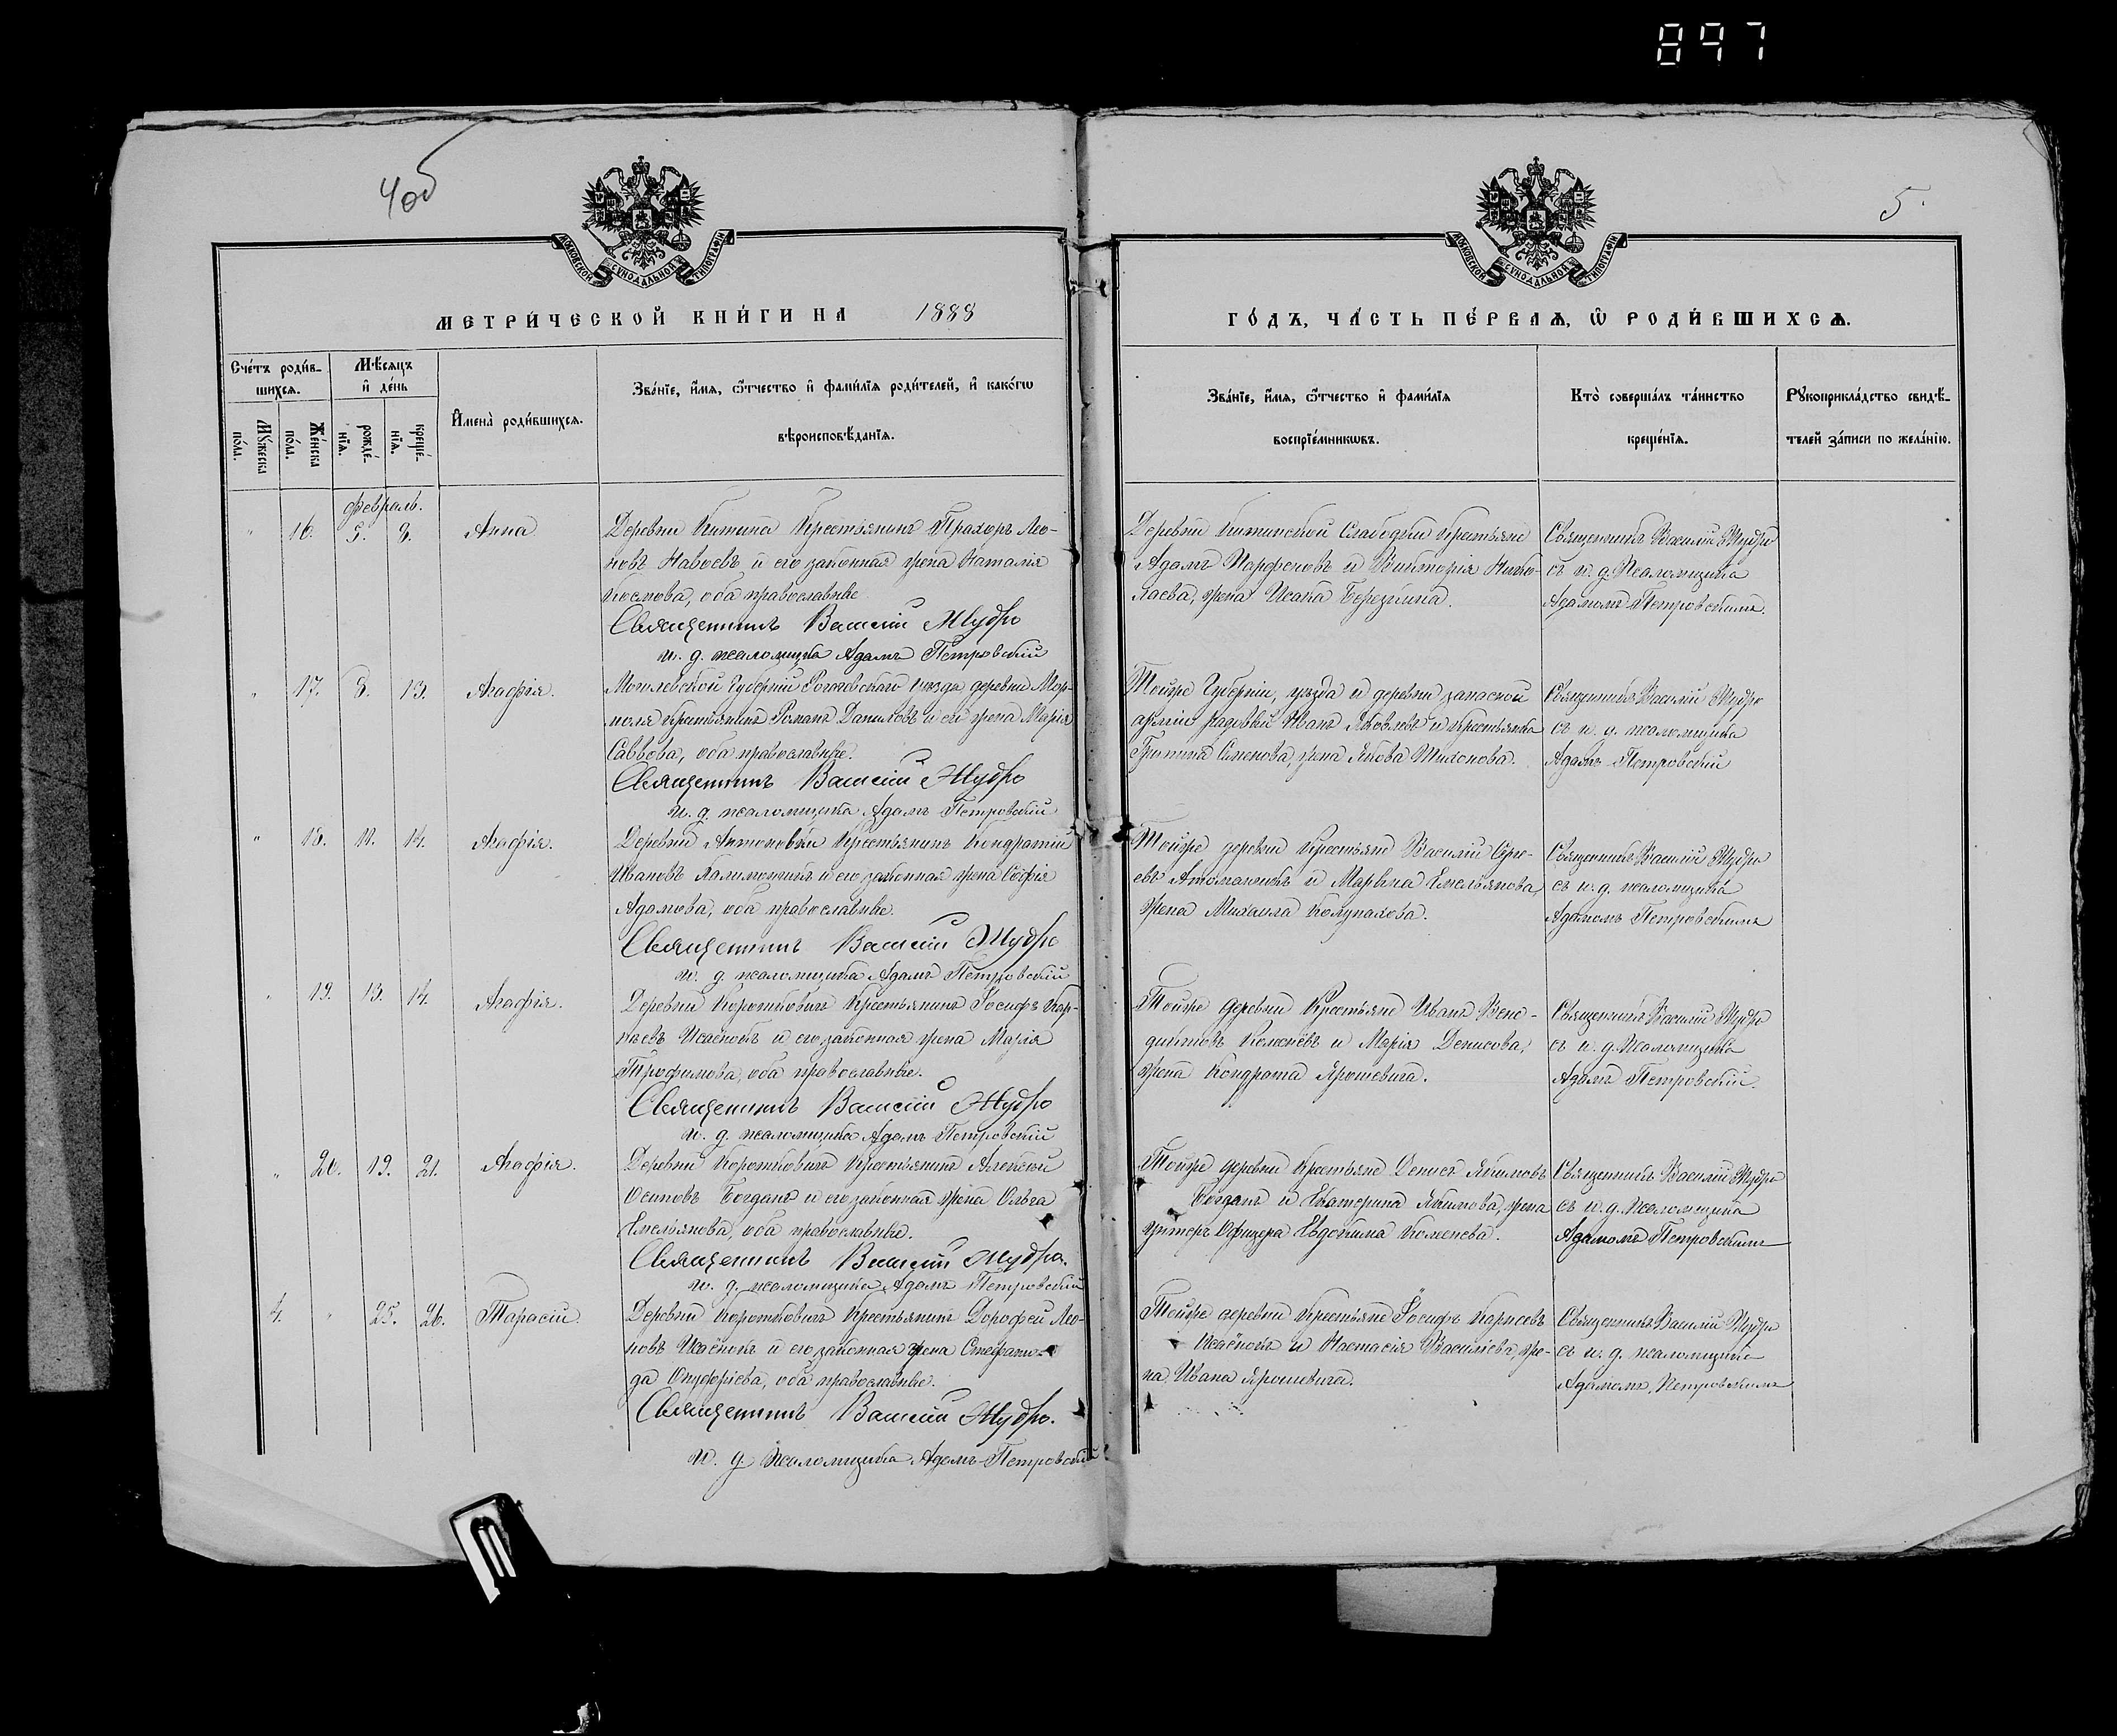 897
4об
5.
МОСКОВСКОЙ СѴНОДАЛЬНОЙ ТИПОГРАФІИ
МОСКОВСКОЙ СѴНОДАЛЬНОЙ ТИПОГРАФІИ
МЕТРИ́ЧЕСКОЙ КНИ́ГИ НА 1888
ГО́ДЪ, ЧА́СТЬ ПЕ́РВАѦ, Ѽ РОДИ́ВШИХСѦ.
Сче́тъ роди́в-
шихся.
Мꙋ́жеска
по́ла.
Же́нска
по́ла.
Мѣ́сяцъ
и҆ де́нь
рожде́-
нїя.
креще́-
нїя.
И҆мена̀ роди́вшихся.
Зва́нїе, и҆́мя, ѻ҆́тчество и҆ фами́лїя роди́телей, и҆ како́гѡ
вѣроисповѣ́данїя.
Зва́нїе, и҆́мя, ѻ҆́тчество и҆ фами́лїя
воспрїе́мникѡвъ.
Кто̀ соверша́лъ та́инство
креще́нїя.
Рꙋкоприкла́дство свидѣ́-
телей за́писи по жела́нїю.
Февраль.
" 16. 5. 8. Анна
Деревни Китина Крестьянинъ Прахоръ Лео-
новъ Навоевъ и его законная жена Наталія
Космова, оба православные.
Священникъ Василій Мудро
и. д. псаломщика Адамъ Петровскій
Деревни Китинской Слабодки крестьяне
Адамъ Парфеновъ и Викторія Нико-
лаева, жена Исака Березкина.
Священникъ Василій Мудро
съ и. д. Псаломщика
Адамомъ Петровскимъ.
" 17. 8. 13. Агафія.
Могилевской Губерніи Рогачевскаго уезда деревни Мор-
моля крестьянинъ Романъ Даниловъ и его жена Марія
Саввова, оба православные.
Священникъ Василій Мудро
и. д. псаломщика Адамъ Петровскій
Тойже Губерніи, уезда и деревни запасной
арміи рядовый Иванъ Яковлевъ и крестьянка
Семенова, жена Якова Тихонова.
Священникъ Василій Мудро
съ и. д. псаломщика
Адамъ Петровскій
" 18. 11. 14. Агафія.
Деревни Антоновки Крестьянинъ Кондратій
Ивановъ и его законная жена Софія
Адамова, оба православные.
Священникъ Василій Мудро
и. д. псаломщика Адамъ Петровскій
Тойже деревни Крестьяне Василій
евъ и Марьяна Емельянова,
жена Михаила
Священникъ Василій Мудро
съ и. д. псаломщика
Адамомъ Петровскимъ
" 19. 13. 14. Агафія.
Деревни Коротковичъ Крестьянинъ Іосифъ Кар-
пѣевъ Исаёнокъ и его законная жена Марія
Трофимова, оба православные.
Священникъ Василій Мудро
и. д. псаломщика Адамъ Петровскій
Тойже деревни Крестьяне Иванъ Вене-
диктовъ Коженёвъ и Марія Денисова,
жена Кондрата Ярошевича.
Священникъ Василій Мудро
съ и. д. Псаломщика
Адамъ Петровскій.
" 20. 19. 21. Агафія.
Деревни Коротковичъ Крестьянинъ Алексѣй
Осиповъ Богданъ и его законная жена Ольга
Емельянова, оба православные.
Священникъ Василій Мудро.
и. д. псаломщика Адамъ Петровскій
Тойже деревни Крестьяне Денисъ Якимовъ
Богданъ и Екатерина Якимова, жена
унтеръ Офицера Евдокима Коженева.
Священникъ Василій Мудро
съ и. д. Псаломщика
Адамомъ Петровскимъ
4. " 25. 26. Тарасій.
Деревни Коротковичъ Крестьянинъ Дорофей Лео-
новъ Исаёнокъ и его законная жена Стефани-
да Онуфріева, оба православные.
Священникъ Василій Мудро.
и. д. псаломщика Адамъ Петровскій
Тойже деревни Крестьяне Іосифъ Карпеевъ
Исаёнокъ и Настасія Василіева, же-
на Ивана Ярошевича.
Священникъ Василій Мудро
съ и. д. псаломщика
Адамомъ Петровскимъ